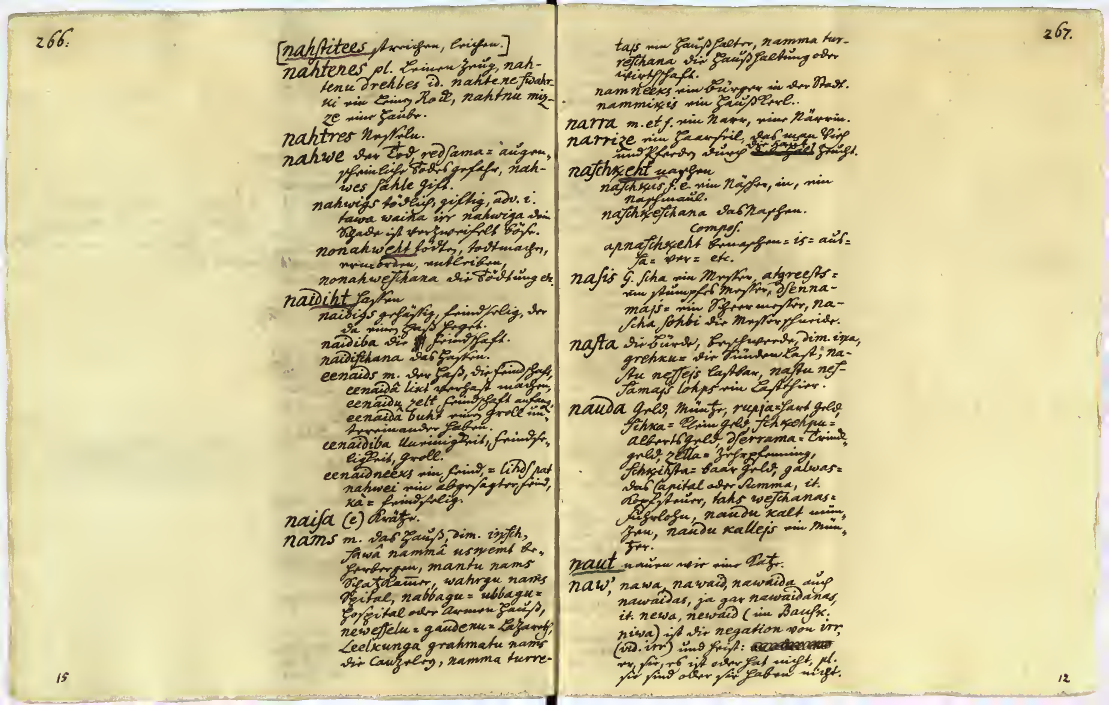 266.
[nahstitees streichen, leichen.]
nahtenes pl. Leinen Zeug, nah-
tenu drehbes id. nahtene swahr-
ki ein Leinen Rock, nahtnu miz-
ze eine Haube.
nahtres Nesseln.
nahwe der Tod, redsama= augen-
scheinliche Todesgefahr, nah-
wes sahle Gift.
nahwigs tödlich, giftig, adv. i.
tawa waina irr nahwiga dein
Schade ist verzweifelt böse.
nonahweht tödten, todtmachen,
ermorden, entleiben,
nonahweschana die Tödtung etc.
naidiht hassen
naidigs gehässig, feindselig, der
da einen Haß heget.
naidiba die Feindschaft.
naidischana das Hassen.
eenaids m. der Haß, die Feindschaft,
eenaidâ likt verhast machen,
eenaidu zelt Feindschaft anfang.
eenaidâ buht einen Groll un-
tereinander haben.
eenaidiba Uneinigkeit, Feindse-
ligkeit, Groll.
eenaidneeks ein Feind, = lihds pat
nahwei ein abgesagter Feind,
ka= feindselig.
naisa (e) Krätze.
nams m. das Hauß, dim. insch,
sawa nammâ usnemt be-
herbergen, mantu nams
Schatzkamer, wahrgu nams
Spital, nabbagu= ubbagu=
Hospital oder Armen Hauß,
newesselu= gaudenu= Lazareth,
Leelkunga grahmatu nams
die Cantzeley, namma turre-
15
267.
tajs ein Haußhalter, namma tur-
reschana die Haußhaltung oder
Wirthschaft.
namneeks ein Bürger in der Stadt.
nammikis ein Haußkerl.
narra m. et f. ein Narr, eine Närrin.
narrize ein Haarseil, das man Vieh
und Pferden durch zeucht.
naschkeht naschen
naschkis, f. e. ein Näscher, in, ein
Naschmaul.
naschkeschana das Naschen.
Compos.
apnaschkeht benaschen= is= aus=
sa= ver= etc.
nasis G. scha ein Messer, atgreests=
ein stumpfes Messer, dsenna-
majs= ein Scheermesser, na-
scha sohbi die Messerschneide.
nasta die Bürde, Beschwerde, dim. ina,
grehku= die Sünden Last; na-
stu nessejs Lastbar, nastu nes-
samajs lohps ein Lastthier.
nauda Geld, Müntze, rupja= hart Geld,
sihka= klein Geld, schkehpu=
Alberts Geld, dserrama= Trinck-
geld, zella= Zehrpfenning,
schkihsta= baar Geld, galwas=
das Capital oder Summa, it.
Kopfsteuer, tahs weschanas=
Fuhrlohn, naudu kalt mün-
zen, naudu kallejs ein Mün-
zer.
naut nauen wie eine Katze.
naw, nawa, nawaid, nawaida, auch
nawaidas, ja gar nawaidanas,
it. newa, newaid (im Bausk.
niwa) ist die negation von irr,
(vid. irr) und heist:
er, sie, es ist oder hat nicht, pl.
sie sind oder sie haben nicht.
12